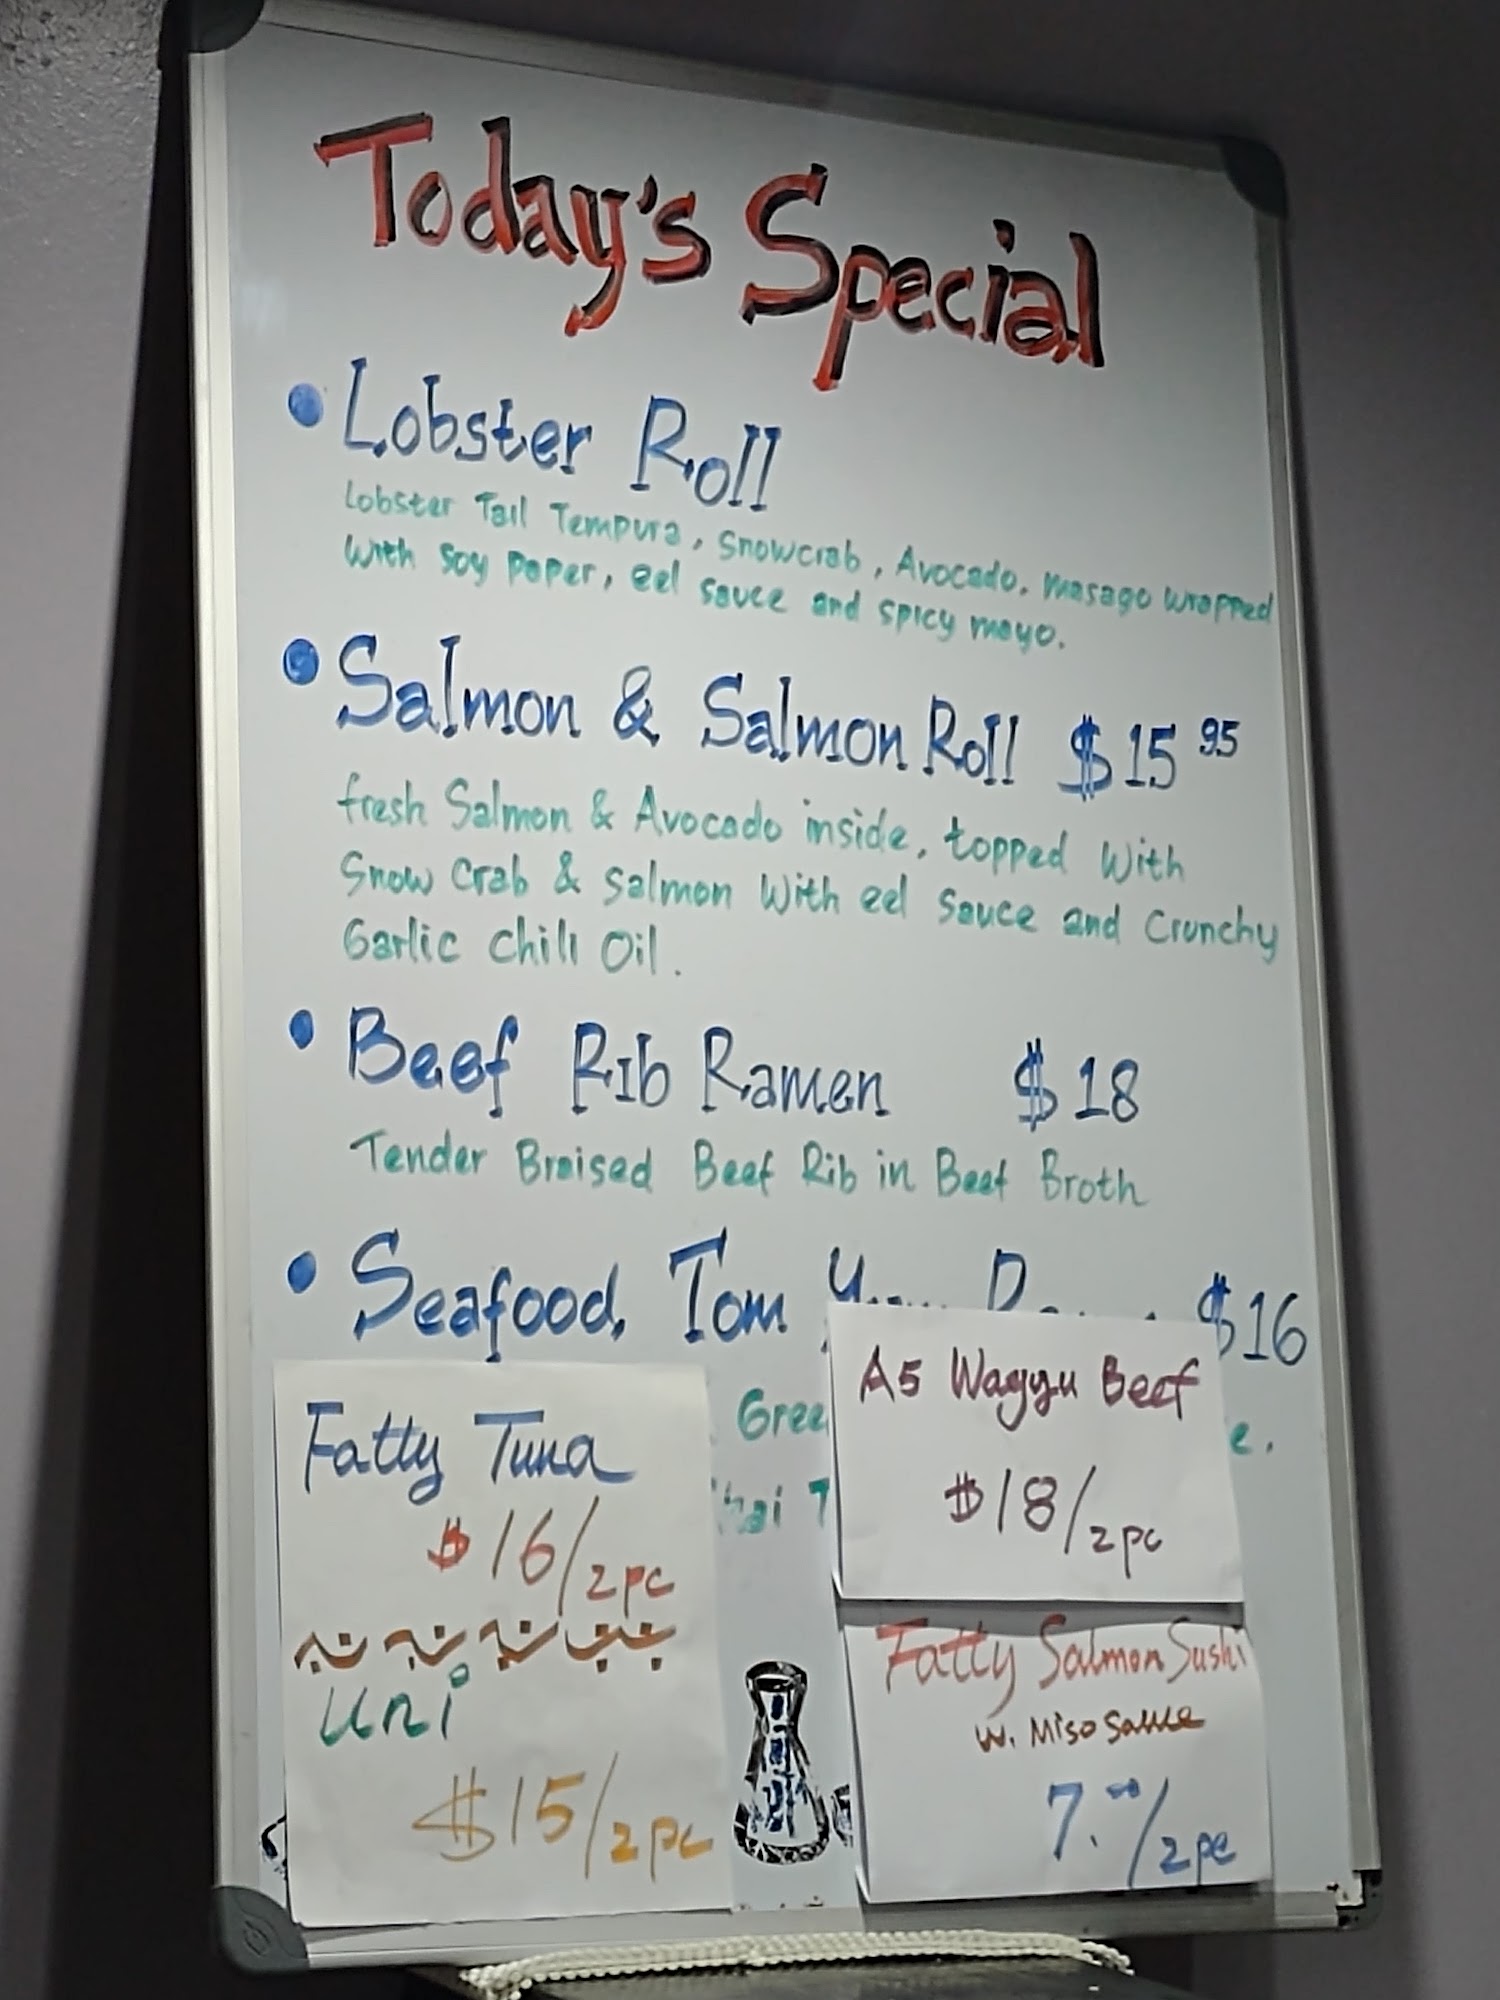 Today's Special
• Lobster Roll
Lobster Tail Tempura, Snowcrab, Avocado, masago wrapped
with Soy paper, eel sauce and spicy mayo.
• Salmon & Salmon Roll $15.95
fresh Salmon & Avocado inside, topped With
Snow Crab & salmon With eel sauce and Crunchy
Garlic Chili Oil.
• Beef Rib Ramen $18
Tender Braised Beef Rib in Beef Broth
• Seafood, Tom $16
Fatty Tuna
$16/2pc
Uni
$15/2pc
A5 Wagyu Beef
$18/2pc
Fatty Salmon Sushi
w. Miso Sauce
7.00/2pc